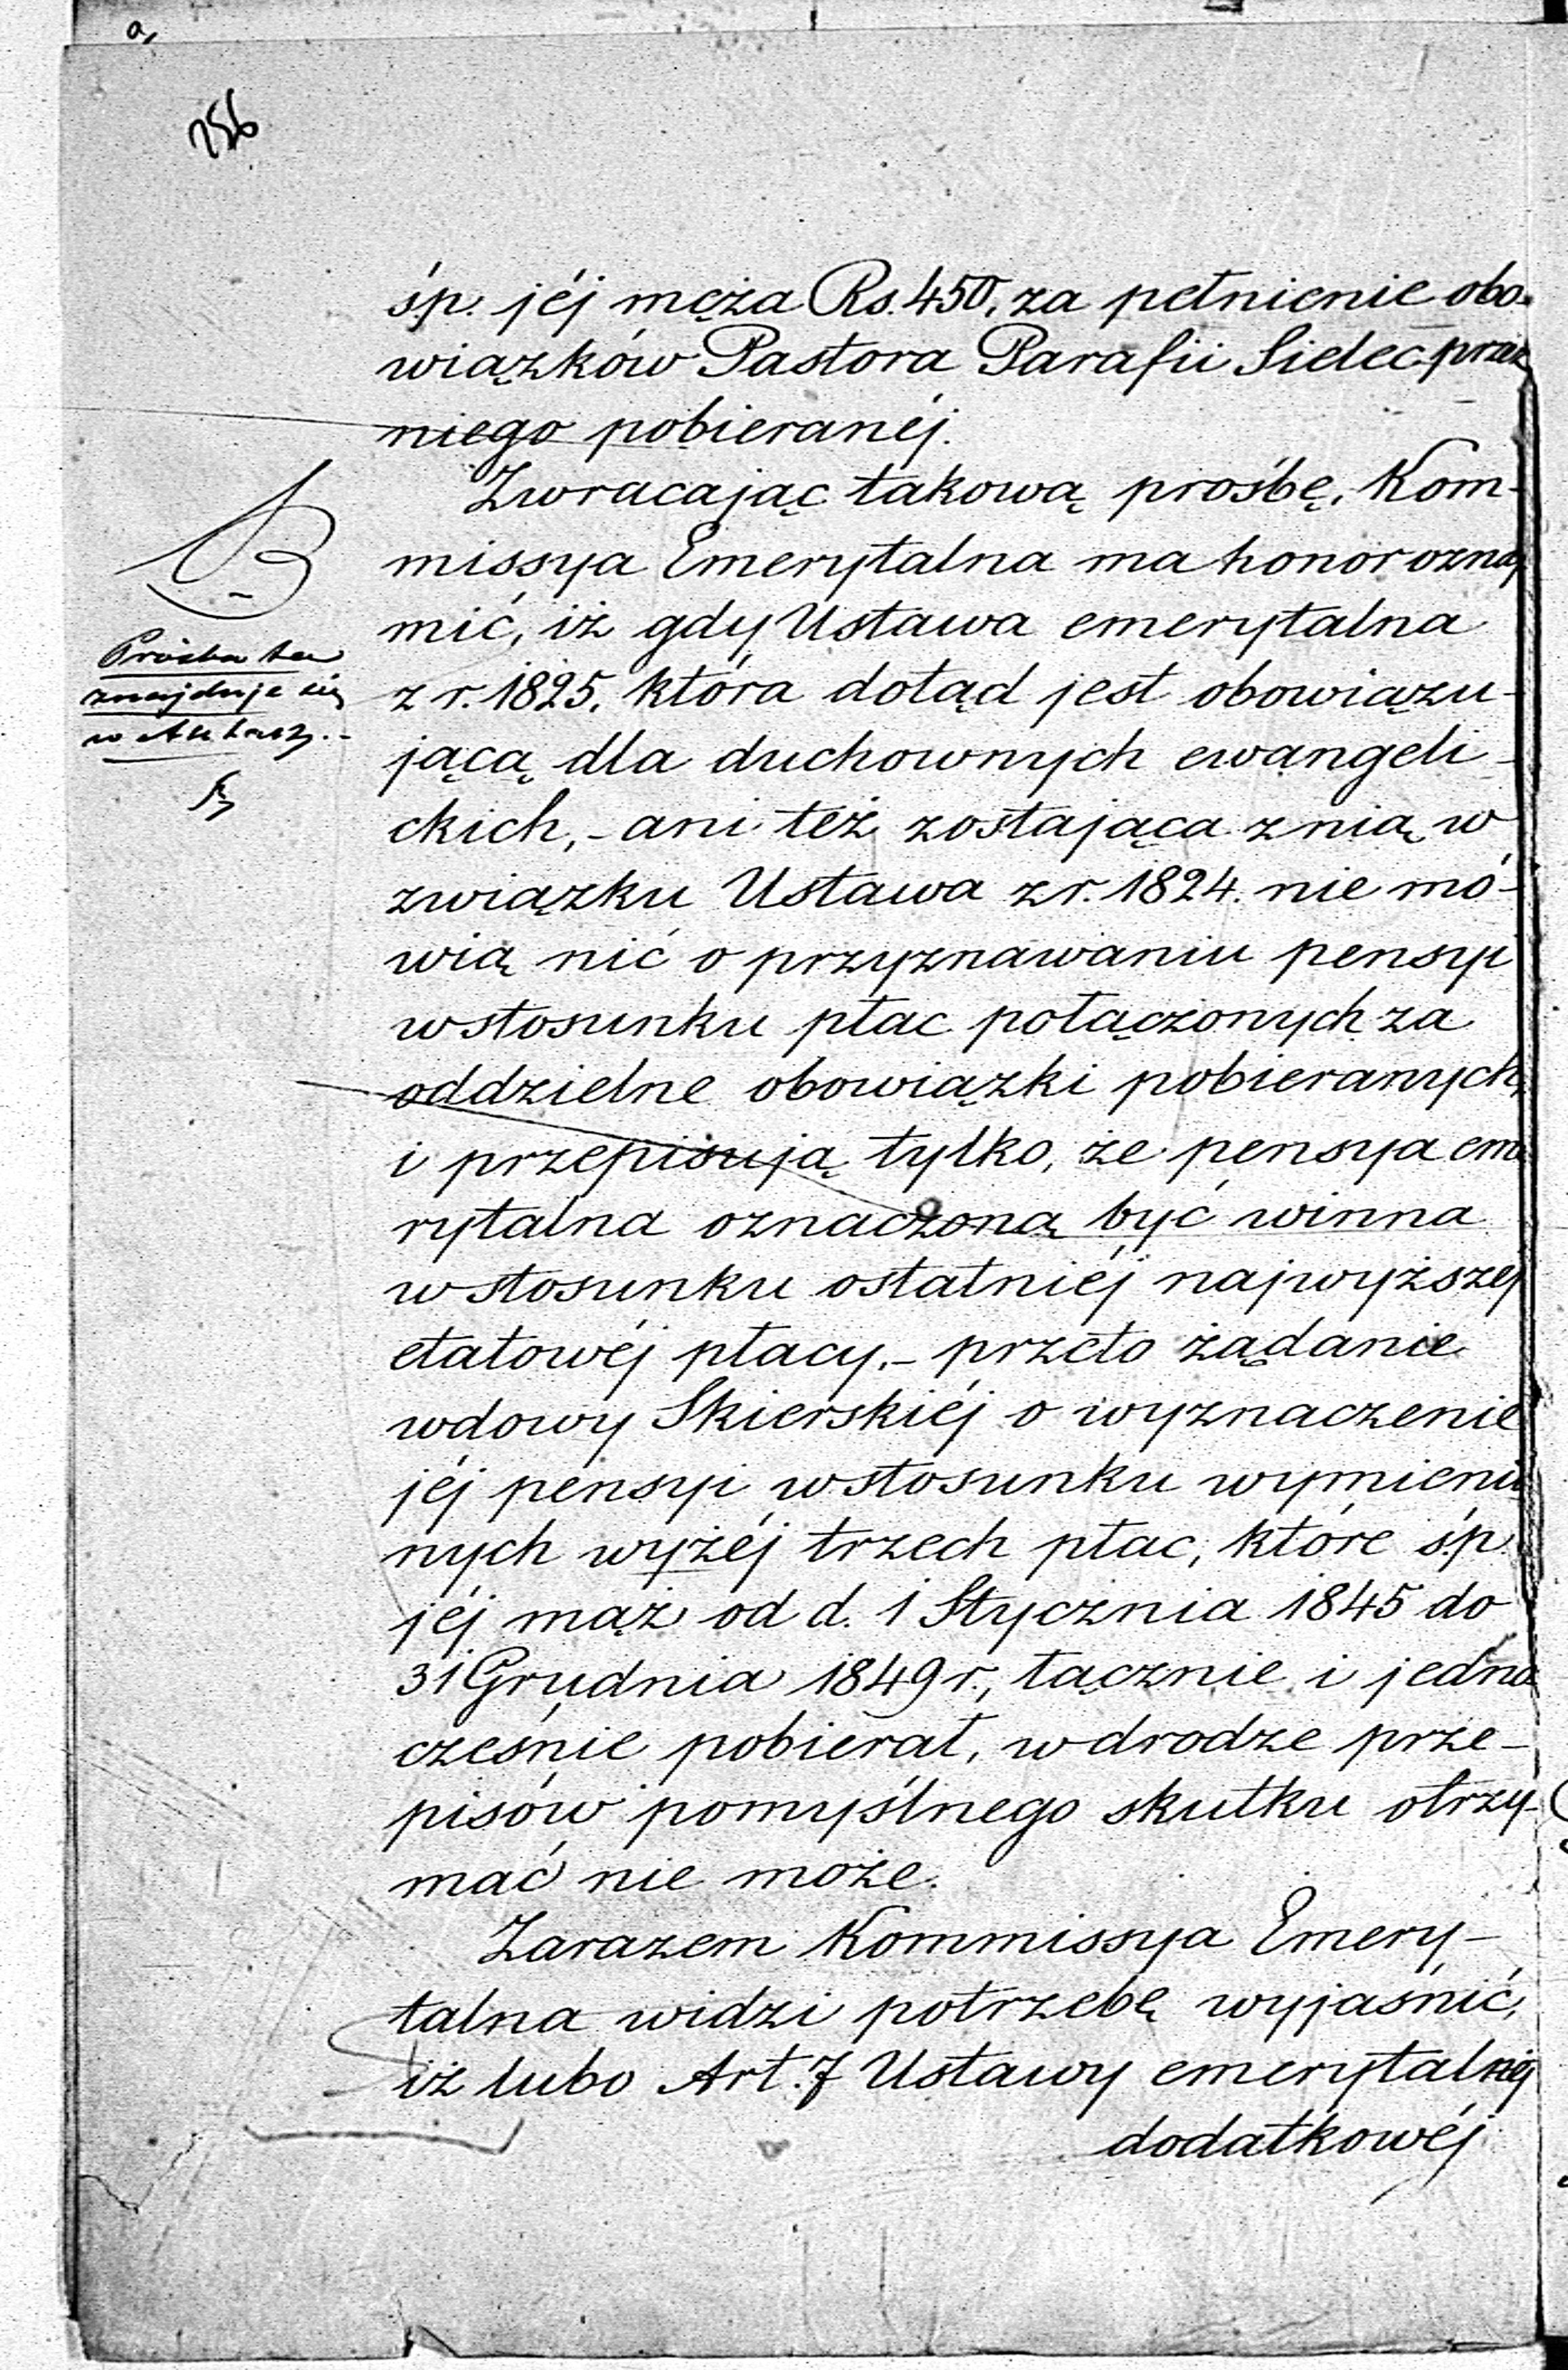 256
śp. jéj męża Rs. 450, za pełnienie obo-
wiązków Pastora Parafii Sielec przez
niego pobieranéj.
Zwracając takową prośbę, Kom-
missya Emerytalna ma honor oznaj
mić, iż gdy Ustawa emerytalna
z r. 1825, która dotąd jest obowiązu-
jącą dla duchownych ewangeli-
ckich, - ani też zostająca z nią w
związku Ustawa z r. 1824. nie mó-
wią nić o przyznawaniu pensyi
w stosunku płac połączonych za
oddzielne obowiązki pobieranych,
i przepisują tylko, że pensya eme
rytalna oznaczoną być winna
w stosunku ostatniéj najwyższej
etatowéj płacy, - przeto żądanie
wdowy Skierskiéj o wyznaczenie
jéj pensyi w stosunku wymienio
nych wyżéj trzech płac, które śp.
jéj mąż od d. 1 Stycznia 1845 do
31 Grudnia 1849 r., łącznie i jedno
cześnie pobierał, w drodze prze-
pisów pomyślnego skutku otrzy-
mać nie może.
Zarazem Kommissya Emery-
talna widzi potrzebę wyjaśnić,
iż lubo Art. 7 Ustawy emerytalnéj
dodatkowéj
Prośba ta
znajduje się
w Aktach. -